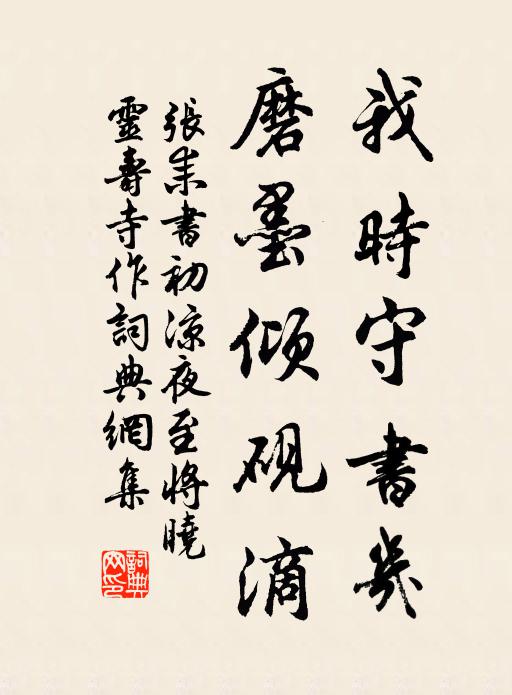 我時守書幾
磨墨傾硯滴
張耒書初涼夜至將曉
靈壽寺作詞典網集
詞典網印